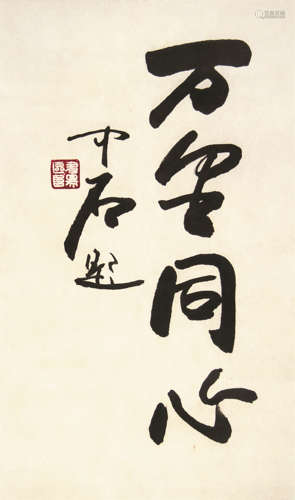 万 同心
中石题